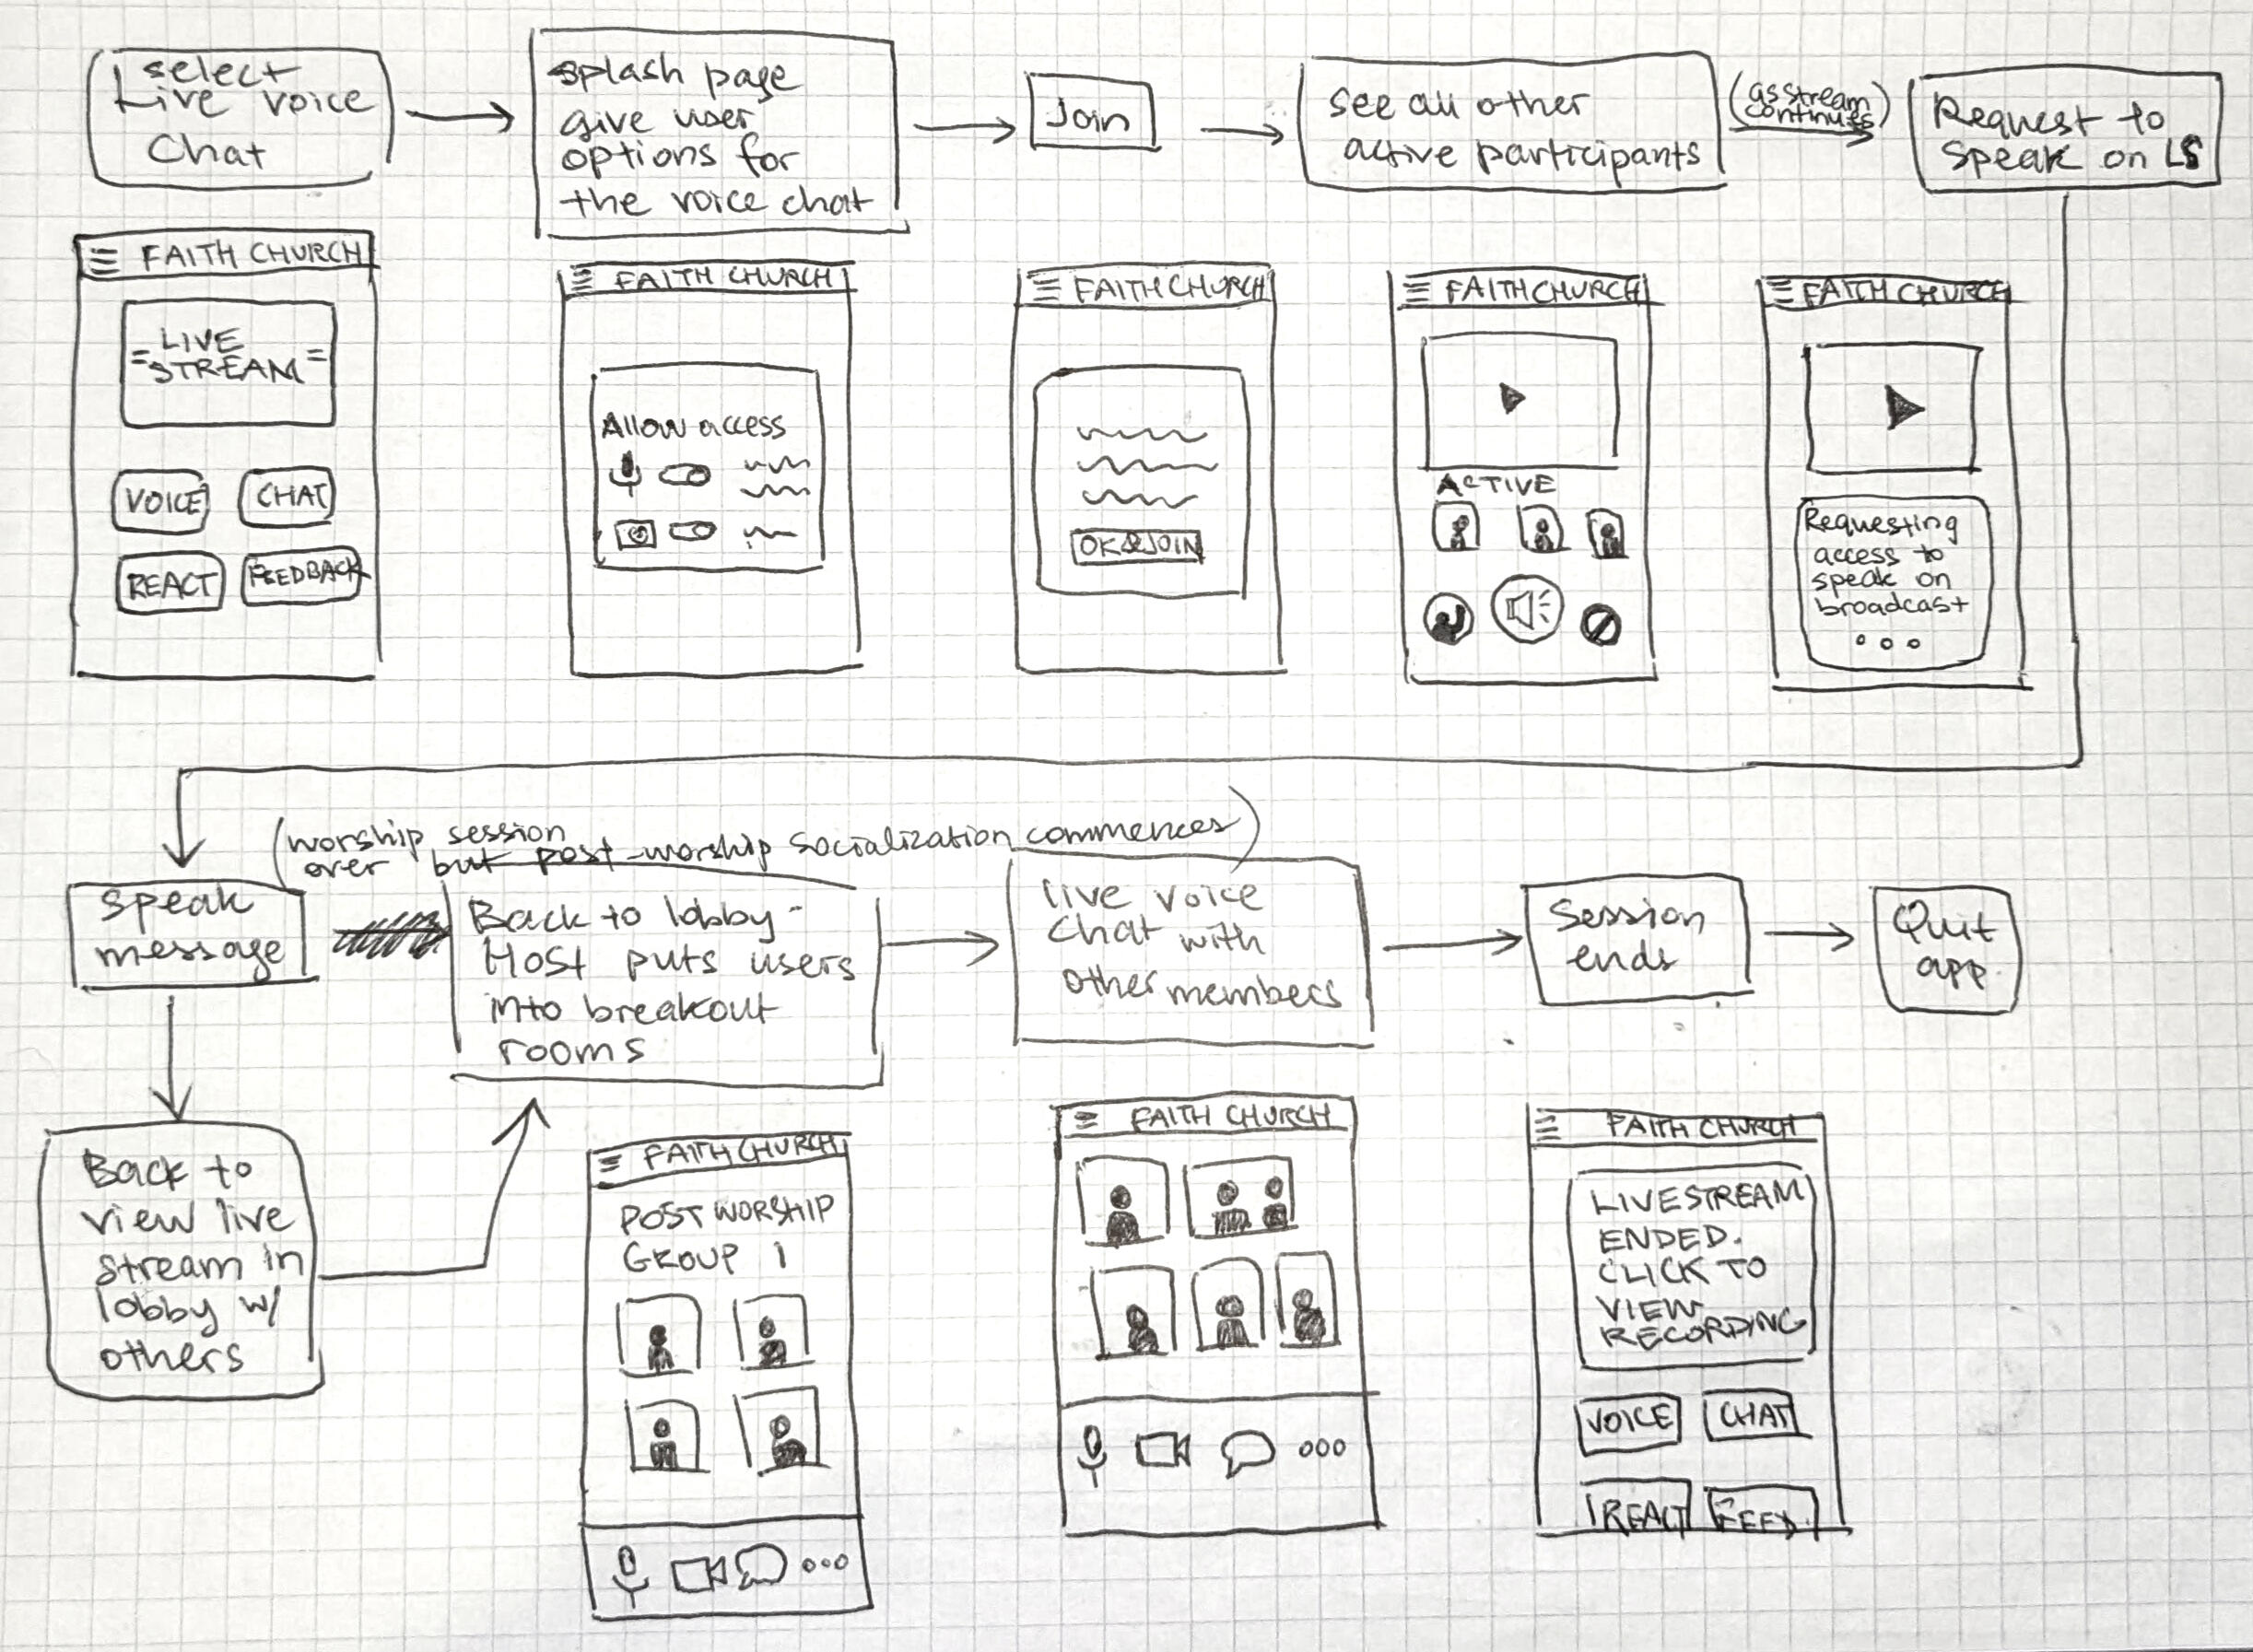 select
Live voice
Chat
splash page
give user
options for
the voice chat
Join
see all other
active participants
(as stream
continues)
Request to
speak on LS
FAITH CHURCH
LIVE
STREAM
VOICE
CHAT
REACT
FEEDBACK
FAITH CHURCH
Allow access
FAITH CHURCH
OK & JOIN
FAITH CHURCH
ACTIVE
FAITH CHURCH
Requesting
access to
speak on
broadcast
(worship session
over but post-worship socialization commences)
speak
message
Back to lobby -
Host puts users
into breakout
rooms
live voice
chat with
other members
Session
ends
Quit
app
Back to
view live
stream in
lobby w/
others
FAITH CHURCH
POST WORSHIP
GROUP 1
FAITH CHURCH
FAITH CHURCH
LIVESTREAM
ENDED.
CLICK TO
VIEW
RECORDING
VOICE
CHAT
REACT
FEED